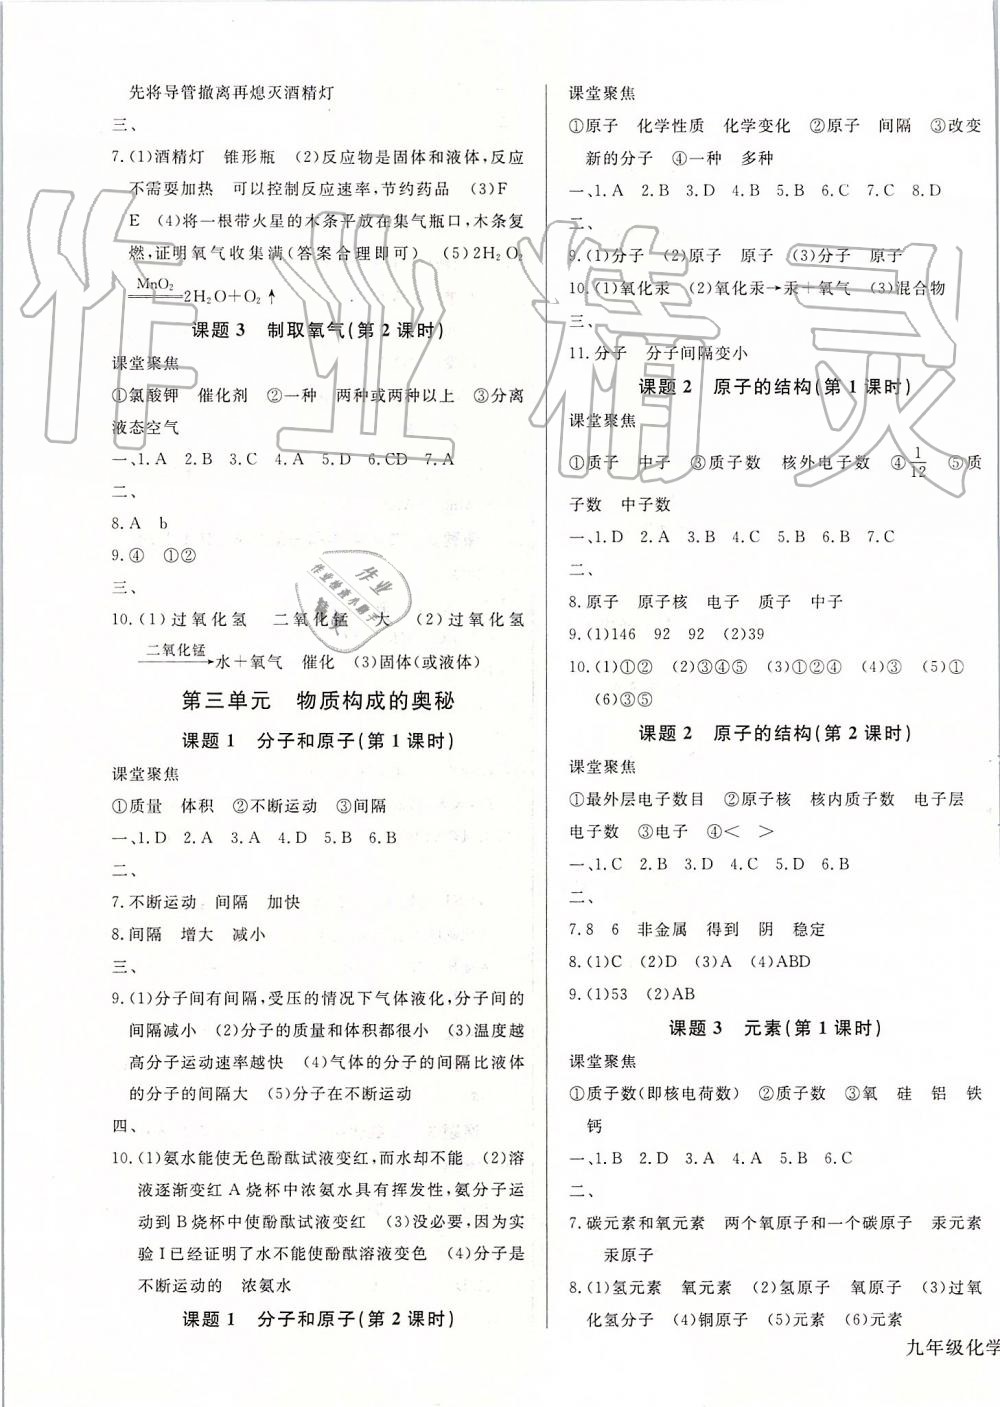 先将导管撤离再熄灭酒精灯
三、
7.(1)酒精灯 锥形瓶 (2)反应物是固体和液体,反应
不需要加热 可以控制反应速率,节约药品 (3)F
E (4)将一根带火星的木条平放在集气瓶口,木条复
燃,证明氧气收集满(答案合理即可) (5)2H₂O₂
MnO₂
═══2H₂O+O₂↑
课题 3 制取氧气(第 2 课时)
课堂聚焦
①氯酸钾 催化剂 ②一种 两种或两种以上 ③分离
液态空气
一、1.A 2.B 3.C 4.A 5.D 6.CD 7.A
二、
8.A b
9.④ ①②
三、
10.(1)过氧化氢 二氧化锰 大 (2)过氧化氢
二氧化锰
→水+氧气 催化 (3)固体(或液体)
第三单元 物质构成的奥秘
课题 1 分子和原子(第 1 课时)
课堂聚焦
①质量 体积 ②不断运动 ③间隔
一、1.D 2.A 3.A 4.D 5.B 6.B
二、
7.不断运动 间隔 加快
8.间隔 增大 减小
三、
9.(1)分子间有间隔,受压的情况下气体液化,分子间的
间隔减小 (2)分子的质量和体积都很小 (3)温度越
高分子运动速率越快 (4)气体的分子间隔比液体
的分子的间隔大 (5)分子在不断运动
四、
10.(1)氨水能使无色酚酞试液变红,而水却不能 (2)溶
液逐渐变红 A 烧杯中浓氨水具有挥发性,氨分子运
动到 B 烧杯中使酚酞试液变红 (3)没必要,因为实
验 I 已经证明了水不能使酚酞溶液变色 (4)分子是
不断运动的 浓氨水
课题 1 分子和原子(第 2 课时)
课堂聚焦
①原子 化学性质 化学变化 ②原子 间隔 ③改变
新的分子 ④一种 多种
一、1.A 2.B 3.D 4.B 5.B 6.C 7.C 8.D
二、
9.(1)分子 (2)原子 原子 (3)分子 原子
10.(1)氧化汞 (2)氧化汞→汞+氧气 (3)混合物
三、
11.分子 分子间隔变小
课题 2 原子的结构(第 1 课时)
课堂聚焦
①质子 中子 ②电子 ③质子数 核外电子数 ④1/12 ⑤质
子数 中子数
一、1.D 2.A 3.B 4.C 5.B 6.B 7.C
二、
8.原子 原子核 电子 质子 中子
9.(1)146 92 92 (2)39
10.(1)①② (2)③④⑤ (3)①② (4)③ (5)①
(6)③⑤
课题 2 原子的结构(第 2 课时)
课堂聚焦
①最外层电子数目 ②原子核 核内质子数 电子层
电子数 ③电子 ④< >
一、1.C 2.B 3.D 4.C 5.D 6.A
二、
7.8 6 非金属 得到 阴 稳定
8.(1)C (2)D (3)A (4)ABD
9.(1)53 (2)AB
课题 3 元素(第 1 课时)
课堂聚焦
①质子数(即核电荷数) ②质子数 ③氧 硅 铝 铁
钙
一、1.B 2.C 3.D 4.A 5.B 6.C
二、
7.碳元素和氧元素 两个氧原子和一个碳原子 汞元素
汞原子
8.(1)氢元素 氧元素 (2)氢原子 氧原子 (3)过氧
化氢分子 (4)铜原子 (5)元素 (6)元素
九年级化学
作业精灵
作业